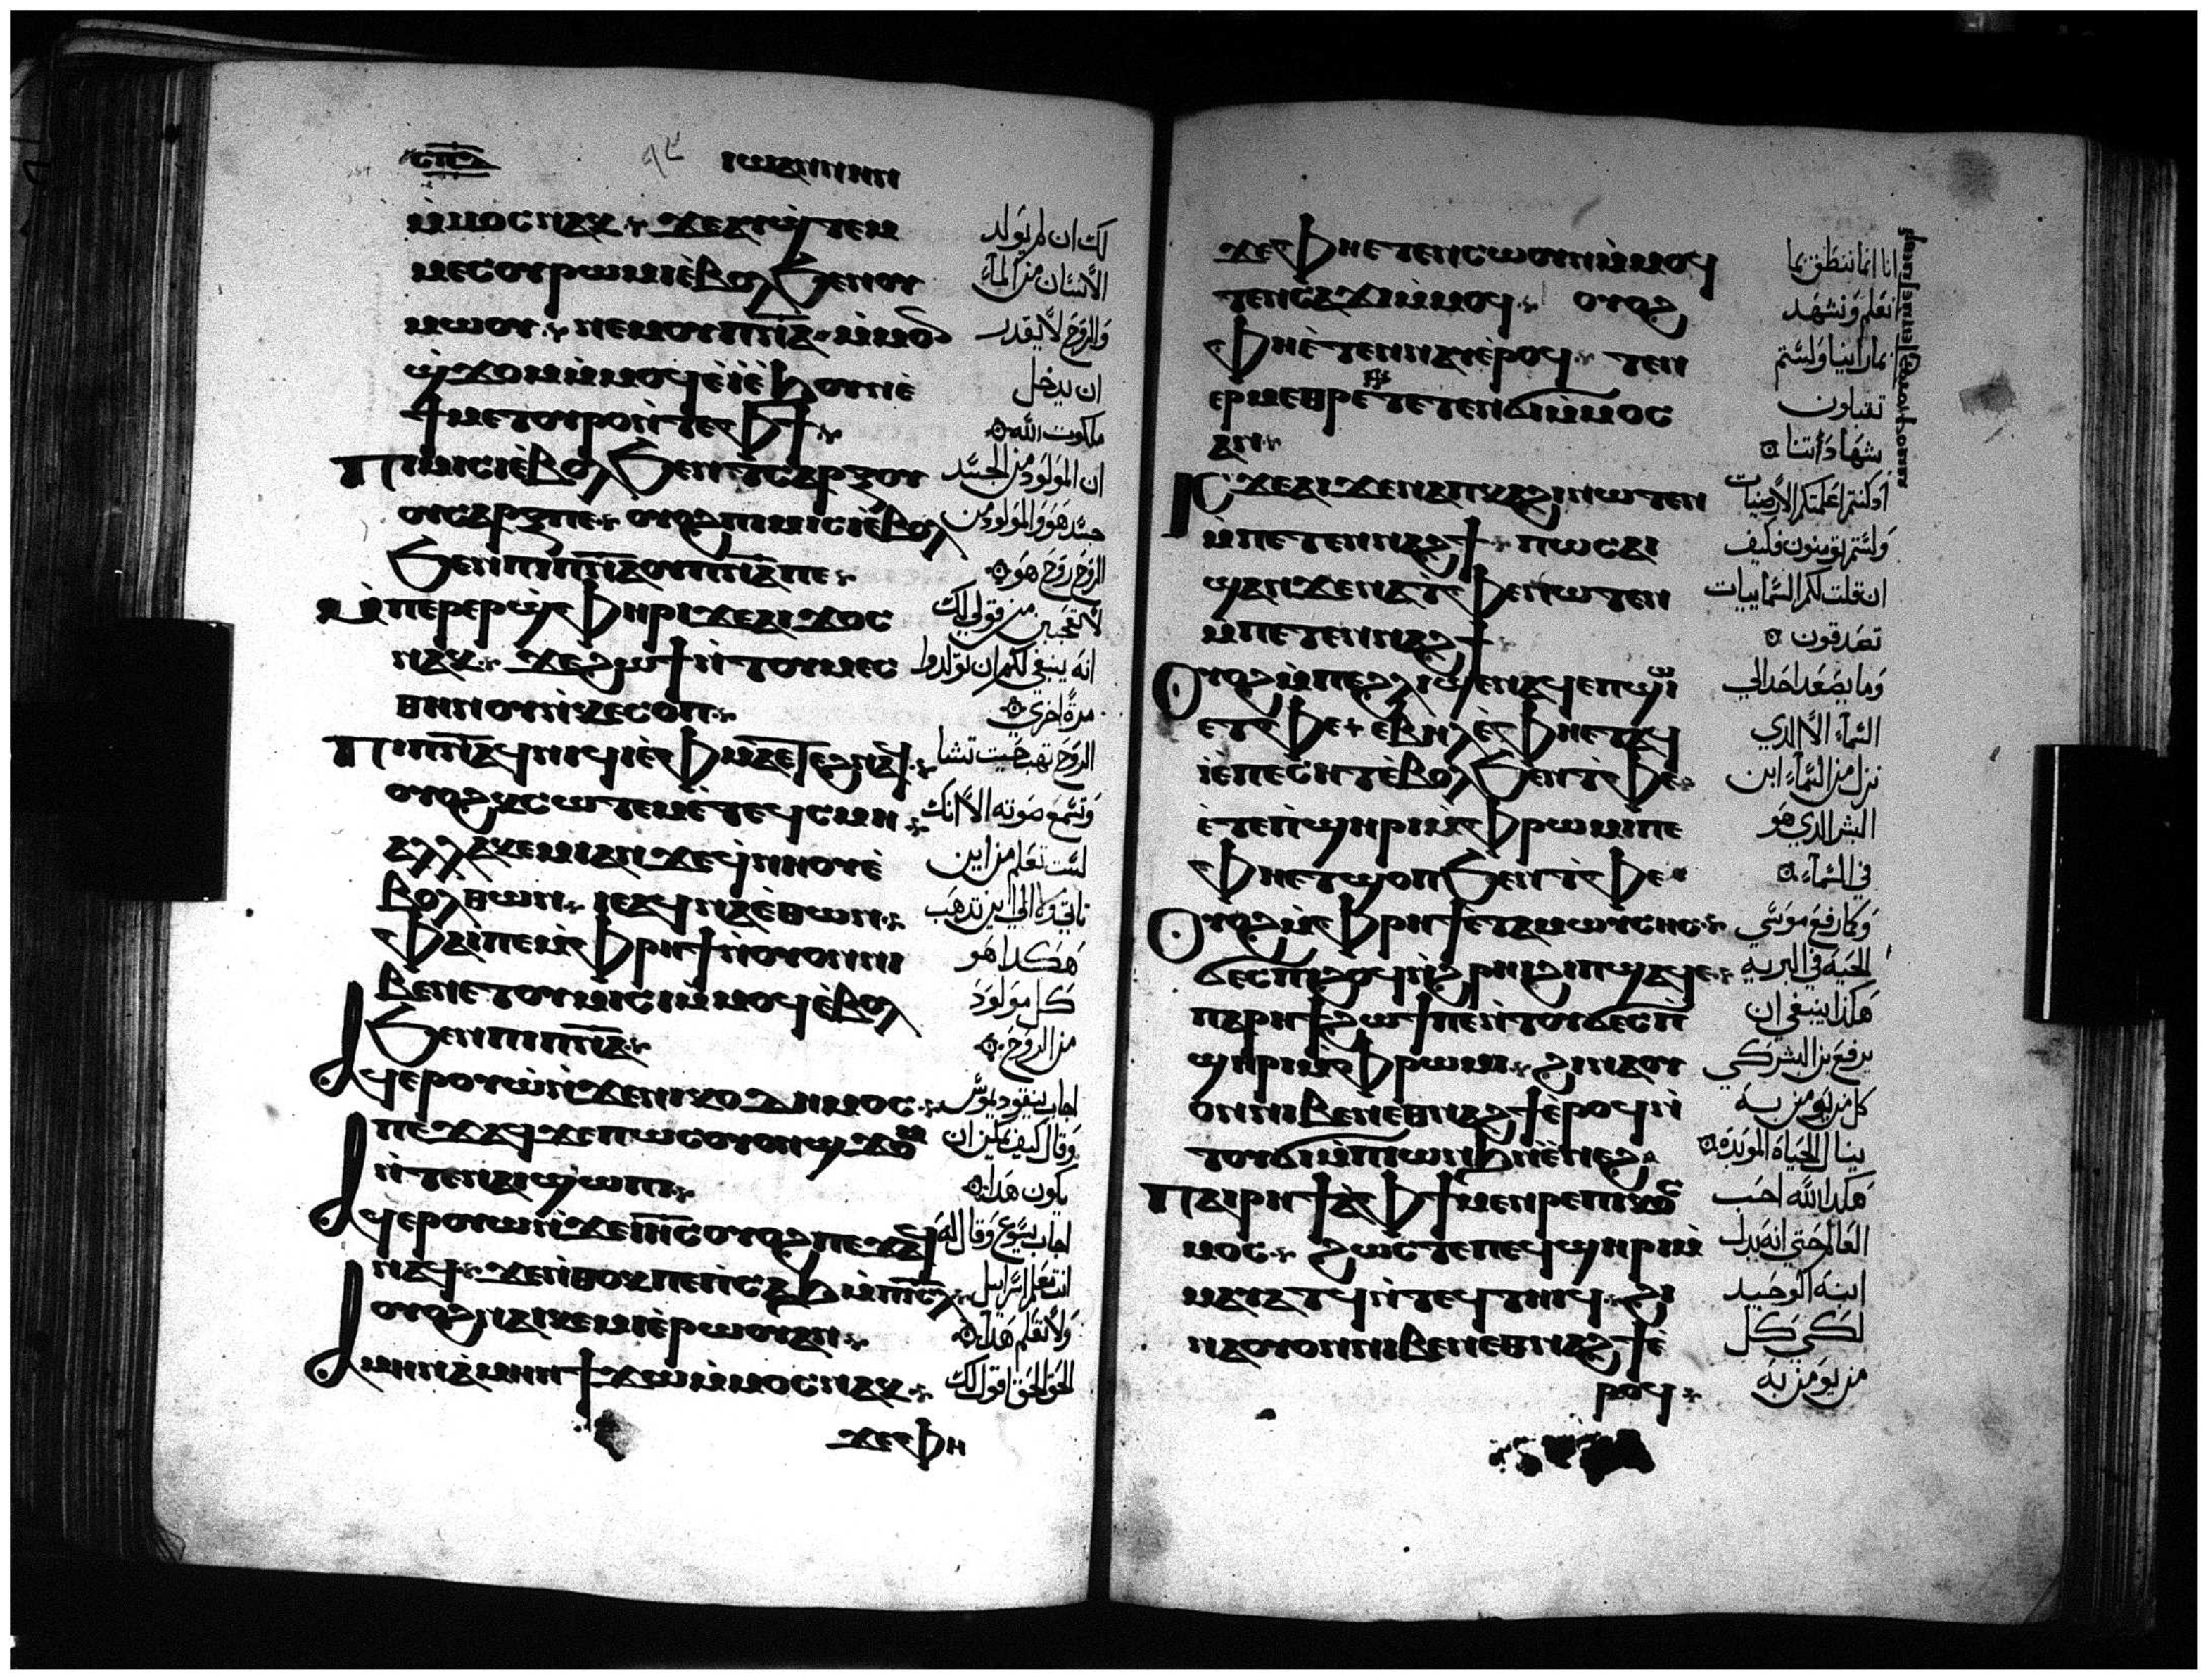 ⲓⲱⲁⲛⲛⲏⲛ
ⲙ̀ⲙⲟⲥ ⲛⲁⲕ ϫⲉ ⲁⲩϣ̀ⲧⲉⲙ
ⲙⲉⲥ ⲟⲩⲣⲱⲙⲓ ⲉ̀ⲃⲟⲗ ϧⲉⲛ ⲟⲩ
ⲙⲱⲟⲩ ⲛⲉⲙ ⲟⲩⲡⲛ̅ⲁ̅ ⲙ̀ⲙⲟ
ϣ̀ϫⲟⲙ ⲙ̀ⲙⲟϥ ⲉ̀ⲓ̀ ⲉ̀ϧⲟⲩⲛ ⲉ̀
ϯⲙⲉⲧⲟⲩⲣⲟ ⲛ̀ⲧⲉ ⲫϯ
ⲡⲓⲙⲓⲥⲓ ⲉ̀ⲃⲟⲗ ϧⲉⲛ ϯⲥⲁⲣⲝ ⲟⲩ
ⲟⲩⲥⲁⲣⲝ ⲡⲉ ⲟⲩⲟϩ ⲡⲓⲙⲓⲥⲓ ⲉ̀ⲃⲟⲗ
ϧⲉⲛ ⲡⲓⲡⲛ̅ⲁ̅ ⲟⲩⲡⲛ̅ⲁ̅ ⲡⲉ
ⲙ̀ⲡⲉⲣⲉⲣϣ̀ⲫⲏⲣⲓ ϫⲉ ⲁⲓϫⲟⲥ
ⲛⲁⲕ ϫⲉ ϩⲱϯ ⲛ̀ⲧⲟⲩⲙⲉⲥ
ⲑⲏⲛⲟⲩ ⲛ̀ⲕⲉⲥⲟⲡ
ⲡⲓⲡⲛ̅ⲁ̅ ϥⲛⲓϥⲓ ⲉ̀ⲫⲙⲁ ⲉⲧⲉϩⲛⲁϥ
ⲟⲩⲟϩ ⲕⲥⲱⲧⲉⲙ ⲉ̀ⲧⲉϥⲥⲙⲏ
ⲁⲗⲗⲁ ⲕⲉⲙⲓ ⲁⲛ ϫⲉ ϥ̀ⲛⲏⲟⲩ ⲉ̀
ⲃⲟⲗ ⲑⲱⲛ ⲓⲉ ⲁϥⲛⲁ ⲉ̀ⲑⲱⲛ
ⲫⲁⲓ ⲡⲉ ⲙ̀ⲫⲣⲏϯ ⲛ̀ⲟⲩⲟⲛ ⲛⲓ
ⲃⲉⲛ ⲉⲧⲟⲩⲙⲓⲥⲓ ⲙ̀ⲙⲟϥ ⲉ̀ⲃⲟⲗ
ϧⲉⲛ ⲡⲓⲡⲛ̅ⲁ̅
ⲁϥⲉⲣⲟⲩⲱ̀ ⲛ̀ϫⲉ ⲛⲓⲕⲟⲇⲏⲙⲟⲥ
ⲡⲉϫⲁϥ ϫⲉ ⲡⲱⲥ ⲟⲩⲟⲛ ϣϫⲟⲙ
ⲛ̀ⲧⲉ ⲛⲁⲓ ϣⲱⲡⲓ
ⲁϥⲉⲣⲟⲩⲱ ⲛ̀ϫⲉ ⲓⲏ̅ⲥ̅ ⲟⲩⲟϩ ⲡⲉϫⲁϥ
ⲛⲁϥ ϫⲉ ⲛ̀ⲑⲟⲕ ⲡⲉ ⲛ̀ⲥⲁϧ ⲙ̀ⲡⲓ̅ⲥ̅ⲗ̅
ⲟⲩⲟϩ ⲛⲁⲓ ⲕⲉⲙⲓ ⲉ̀ⲣⲱⲟⲩ ⲁⲛ
ⲁⲙⲏⲛ ⲁ̀ⲙⲏⲛ ϯϫⲱ ⲙ̀ⲙⲟⲥ ⲛⲁⲕ
ϫⲉ ⲫⲏ
لك ان لم يولد
الانسان من الماء
والروح لا يقدر
ان يدخل
ملكوت الله
ان المولود من الجسد
جسد هو والمولود من
الروح روح هو
لا تعجبن من قولي لك
انه ينبغي لكم ان تولدوا
مرة اخري
الروح تهب حيث تشا
وتسمع صوته الا انك
لست تعلم من اين
ياتي ولا الي اين تدهب
هكدا هو
كل مولود
من الروح
اجاب نيقوديموس
وقال كيف يمكن ان
يكون هدا
اجاب يسوع وقال له
انت معلم اسراييل
ولا تعلم هدا
الحق الحق اقول لك
ϫⲉ ⲫⲏ ⲉⲧⲉⲛⲥⲱⲟⲩⲛ ⲙ̀ⲙⲟϥ
ⲧⲉⲛⲥⲁϫⲓ ⲙ̀ⲙⲟϥ ⲟⲩⲟϩ
ⲫⲏ ⲉ̀ⲧⲉⲛⲛⲁⲩ ⲉ̀ⲣⲟϥ ⲧⲉⲛ
ⲉⲣⲙⲉⲑⲣⲉ ⲧⲉⲧⲉⲛϭⲓ ⲙ̀ⲙⲟⲥ
ⲁⲛ
ⲓⲥϫⲉ ⲁⲓϫⲉ ⲛⲁ ⲡⲕⲁϩⲓ ⲛⲱⲧⲉⲛ
ⲙ̀ⲡⲉⲧⲉⲛⲛⲁϩϯ ⲡⲱⲥ ⲁⲓ
ϣⲁⲛϫⲉ ⲛⲁ ⲧ̀ⲫⲉ ⲛⲱⲧⲉⲛ
ⲙ̀ⲡⲉⲧⲉⲛⲛⲁϩϯ
ⲟⲩⲟϩ ⲙ̀ⲡⲉ ϩⲗⲓ ϣⲉⲛⲁϥ ⲉⲡϣⲱⲓ
ⲉⲧⲫⲉ ⲉⲃⲏⲗ ⲉ̀ⲫⲏ ⲉⲧⲁϥ
ⲓ ⲉⲡⲉⲥⲏⲧ ⲉ̀ⲃⲟⲗ ϧⲉⲛ ⲧ̀ⲫⲉ
ⲉ̀ⲧⲉ ⲡ̀ϣⲏⲣⲓ ⲙ̀ⲫⲣⲱⲙⲓ ⲡⲉ
ⲫⲏ ⲉⲧϣⲟⲡ ϧⲉⲛ ⲧ̀ⲫⲉ
ⲟⲩⲟϩ ⲙ̀ⲫⲣⲏϯ ⲉⲧⲁ ⲙⲱⲩⲥⲏⲥ
ϭⲉⲥ ⲡⲓϩⲟϥ ⲛ̀ϩⲣⲏⲓ ϩⲓ ⲡϣⲁϥⲉ
ⲡⲁⲣⲏϯ ϩⲱϯ ⲡⲉ ⲛ̀ⲧⲟⲩϭⲉⲥ ⲡ̀
ϣⲏⲣⲓ ⲙ̀ⲫⲣⲱⲙⲓ ϩⲓⲛⲁ ⲟⲩ
ⲟⲛ ⲛⲓⲃⲉⲛ ⲉⲑⲛⲁϩϯ ⲉ̀ⲣⲟϥ ⲛ̀
ⲧⲟⲩϭⲓ ⲙ̀ⲡⲱⲛϧ ⲛ̀ⲉ̀ⲛⲉϩ
ⲡⲁⲓⲣⲏϯ ⲁ̀ ⲫϯ ⲙⲉⲛⲣⲉ ⲡⲓⲕⲟⲥ
ⲙⲟⲥ ϩⲱⲥⲧⲉ ⲡⲉϥϣⲏⲣⲓ ⲙ̀
ⲙⲁⲩⲁⲧϥ ⲛ̀ⲧⲉϥⲧⲏⲓϥ ϩⲓ
ⲛⲁ ⲟⲩⲟⲛ ⲛⲓⲃⲉⲛ ⲉⲑⲛⲁϩϯ ⲉ̀
ⲣⲟϥ
انا انما ننطق بما
نعلم ونشهد
بما راينا ولستم
تقبلون
شهادتنا
ان كنت اعلمتكم الارضيات
ولستم تومنون فكيف
ان قلت لكم السماييات
تصدقون
وما يصعد احد الي
السماء الا الدي
نزل من السماء ابن
البشر الدي هو
في السماء
وكما رفع موسي
الحية في البرية
هكذا ينبغي ان
يرفع بن البشر كي
كل من يومن به
ينال الحياة الموبدة
هكدا الله احب
العالم حتي انه بدل
ابنه الوحيد
لكي كل
من يومن به